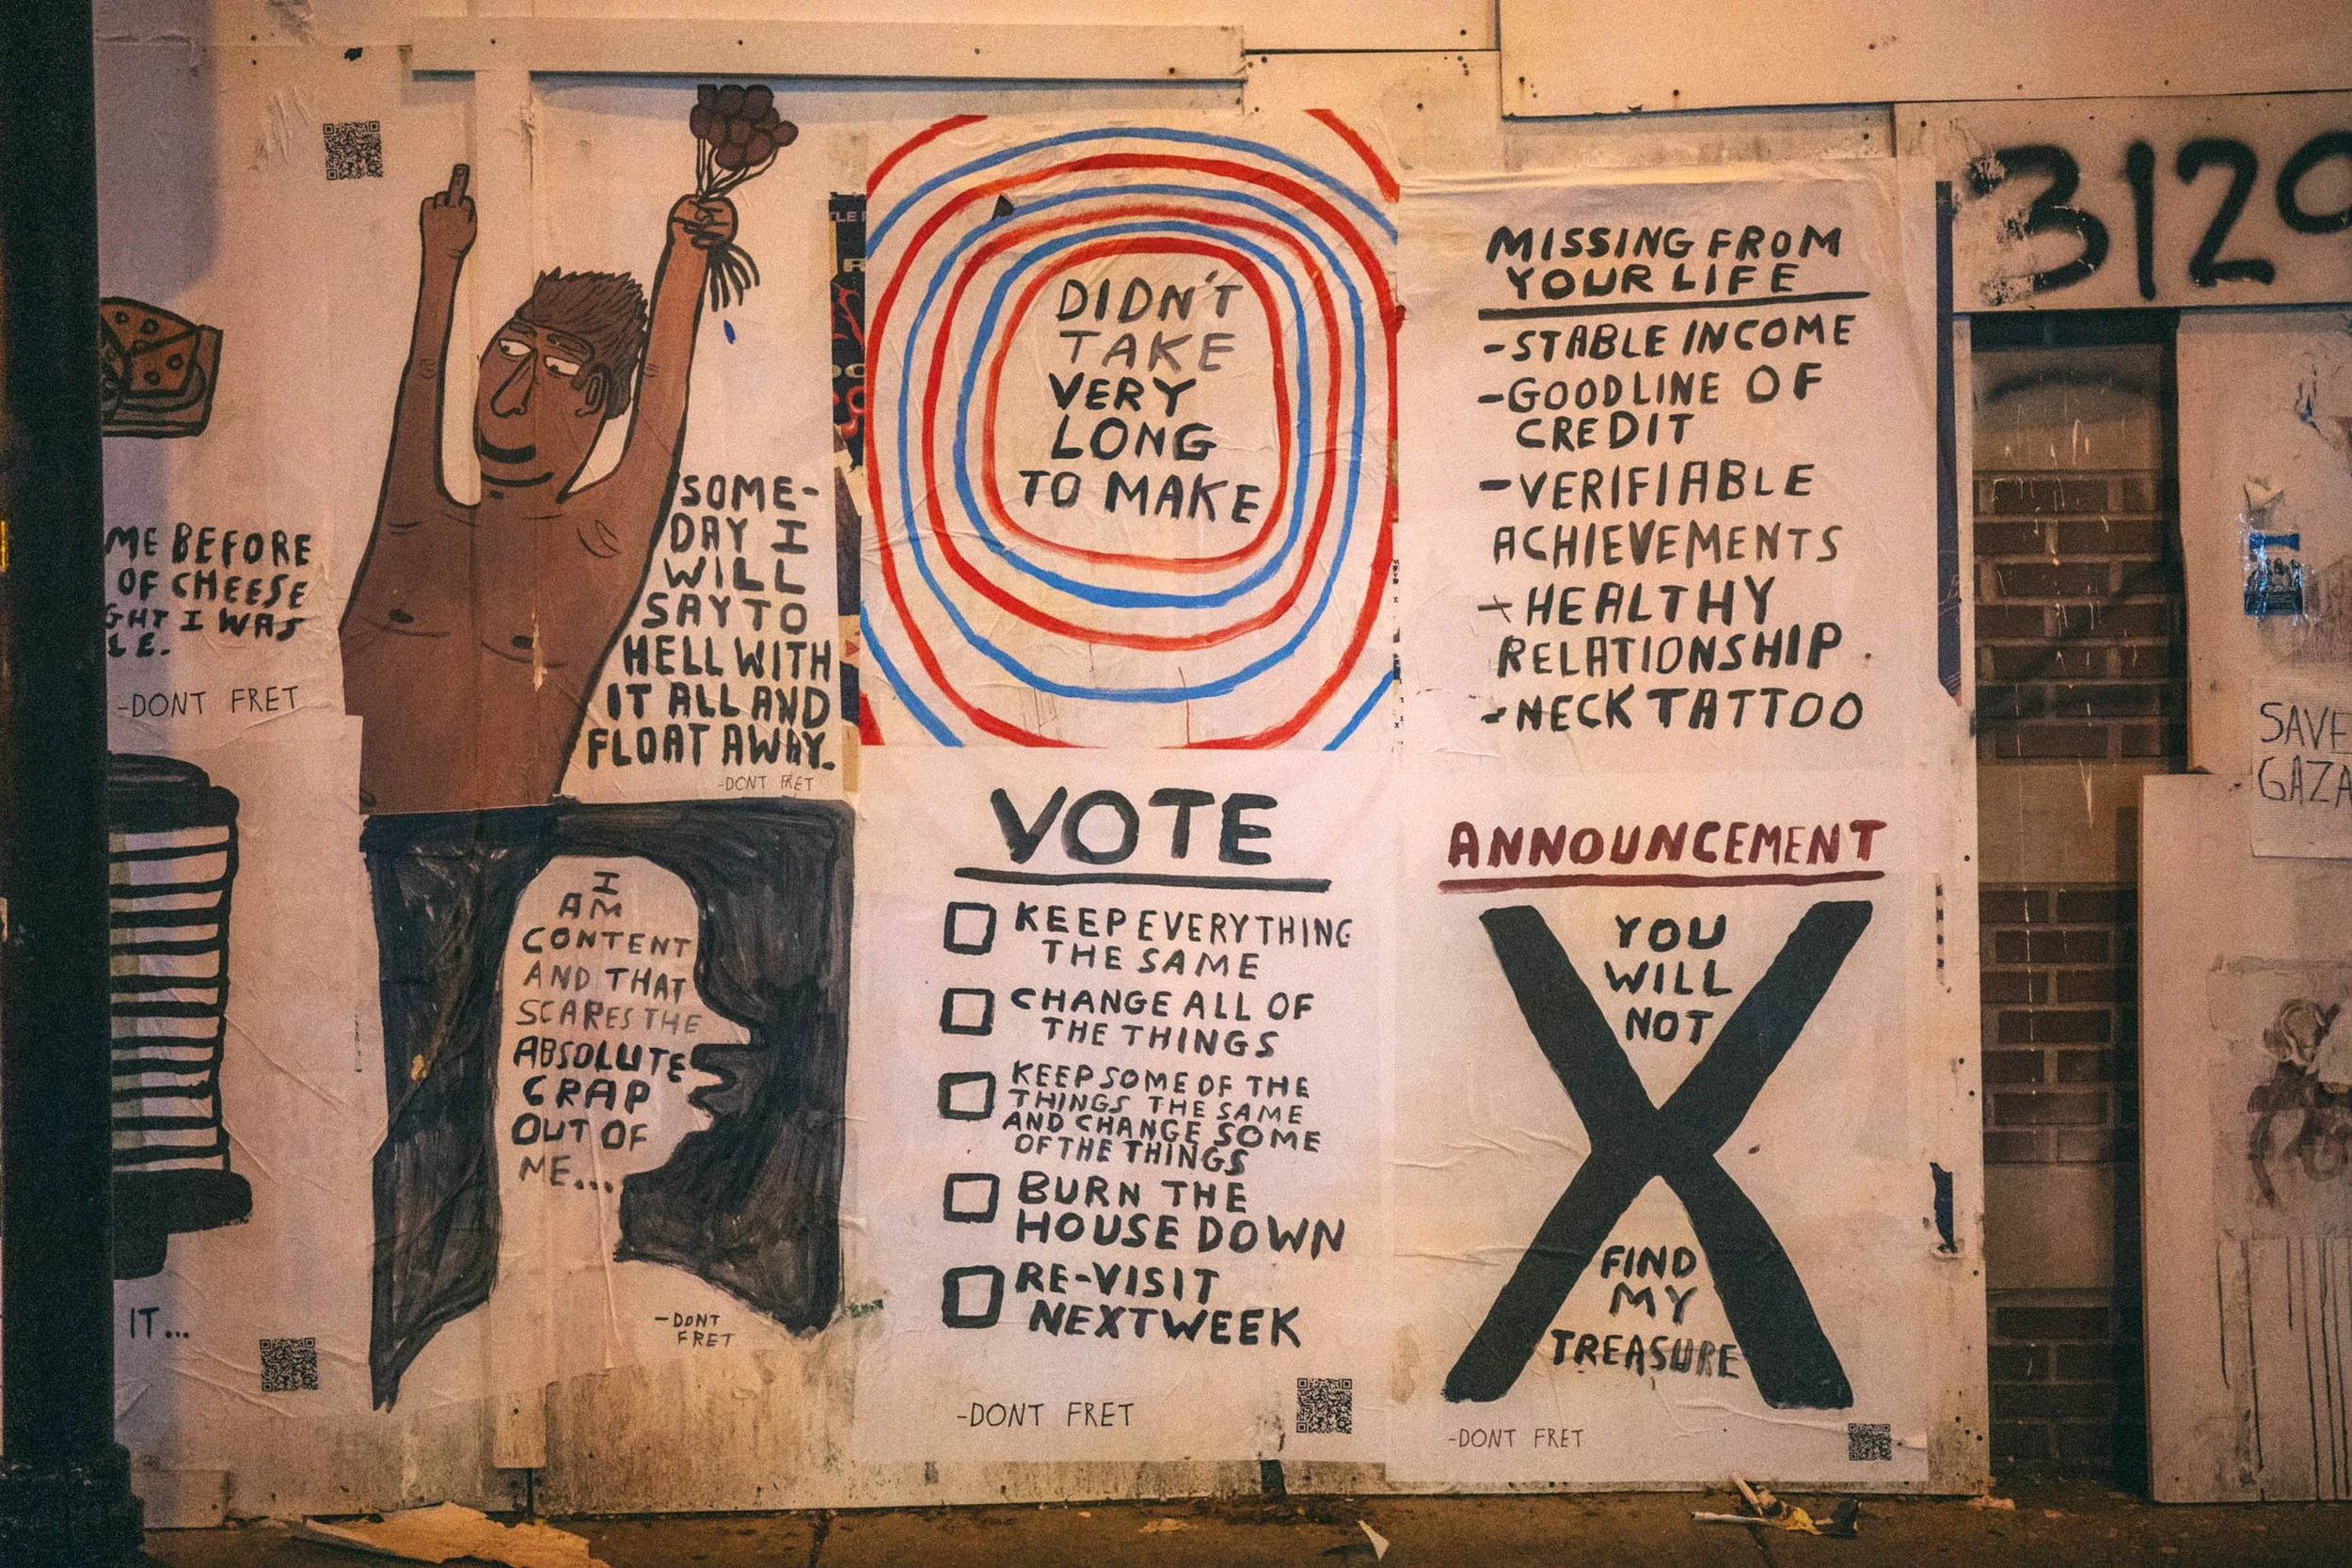 ME BEFORE
OF CHEESE
GHT I WAS
LE.
-DONT FRET
IT...
SOME-
DAY I
WILL
SAY TO
HELL WITH
IT ALL AND
FLOAT AWAY.
-DONT FRET
I
AM
CONTENT
AND THAT
SCARES THE
ABSOLUTE
CRAP
OUT OF
ME...
-DONT
FRET
DIDN'T
TAKE
VERY
LONG
TO MAKE
VOTE
KEEP EVERYTHING
THE SAME
CHANGE ALL OF
THE THINGS
KEEP SOME OF THE
THINGS THE SAME
AND CHANGE SOME
OF THE THINGS
BURN THE
HOUSE DOWN
RE-VISIT
NEXT WEEK
-DONT FRET
MISSING FROM
YOUR LIFE
-STABLE INCOME
-GOOD LINE OF
CREDIT
-VERIFIABLE
ACHIEVEMENTS
-HEALTHY
RELATIONSHIP
-NECK TATTOO
ANNOUNCEMENT
YOU
WILL
NOT
X
FIND
MY
TREASURE
-DONT FRET
3120
SAVE
GAZA